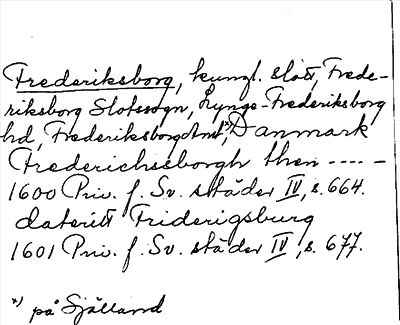 Frederiksborg, kungl. slott, Frede-
riksborg Slotssogn, Lynge-Frederiksborg
hd, Frederiksborg Amt,*) Danmark
Frederichsborgh then -----
1600 Priv. f. Sv. städer IV, s. 664.
daterit Friderigsburg
1601 Priv. f. Sv. städer IV, s. 677.
*) på Själland